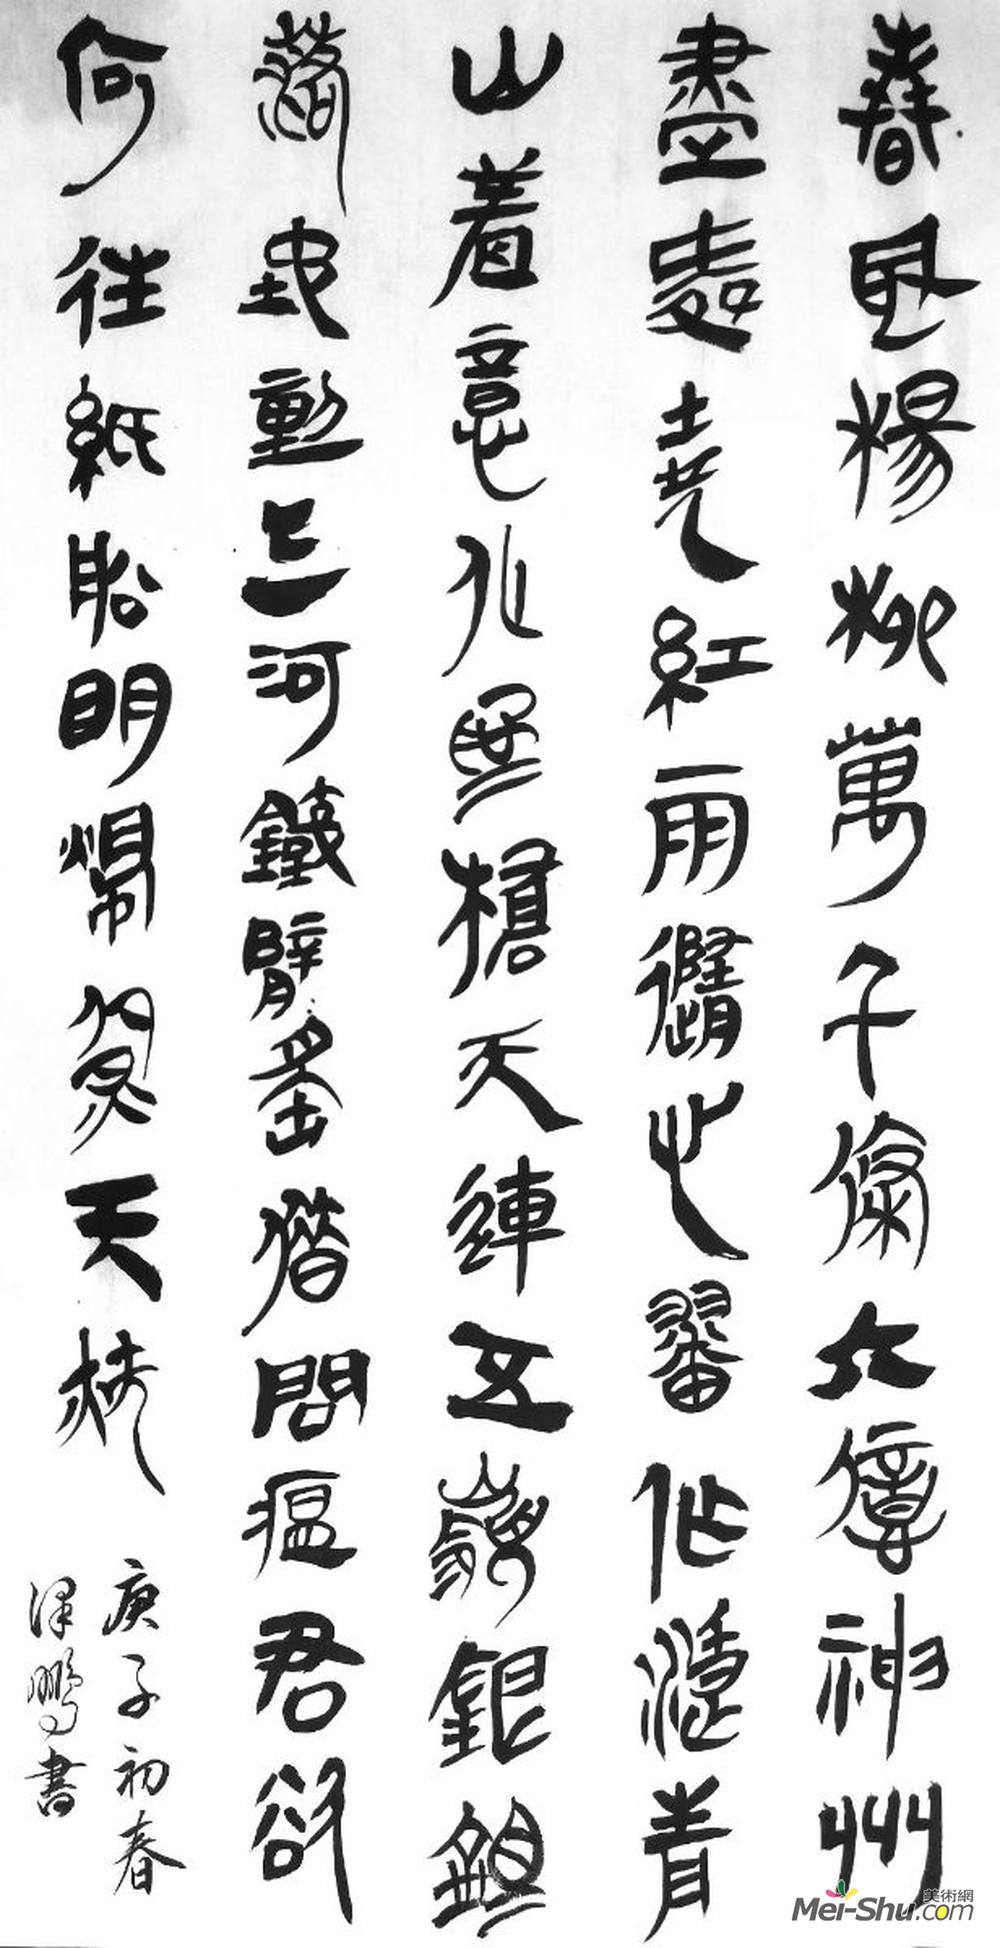 春風楊柳萬千條六億神州
盡舜堯紅雨隨心翻作浪青
山着意化為橋天連五嶺銀鉏
落地動三河鐵臂搖借問瘟君欲
何往紙船明燭照天燒
庚子初春
澤鵬書
美術網
Mei-Shu.com